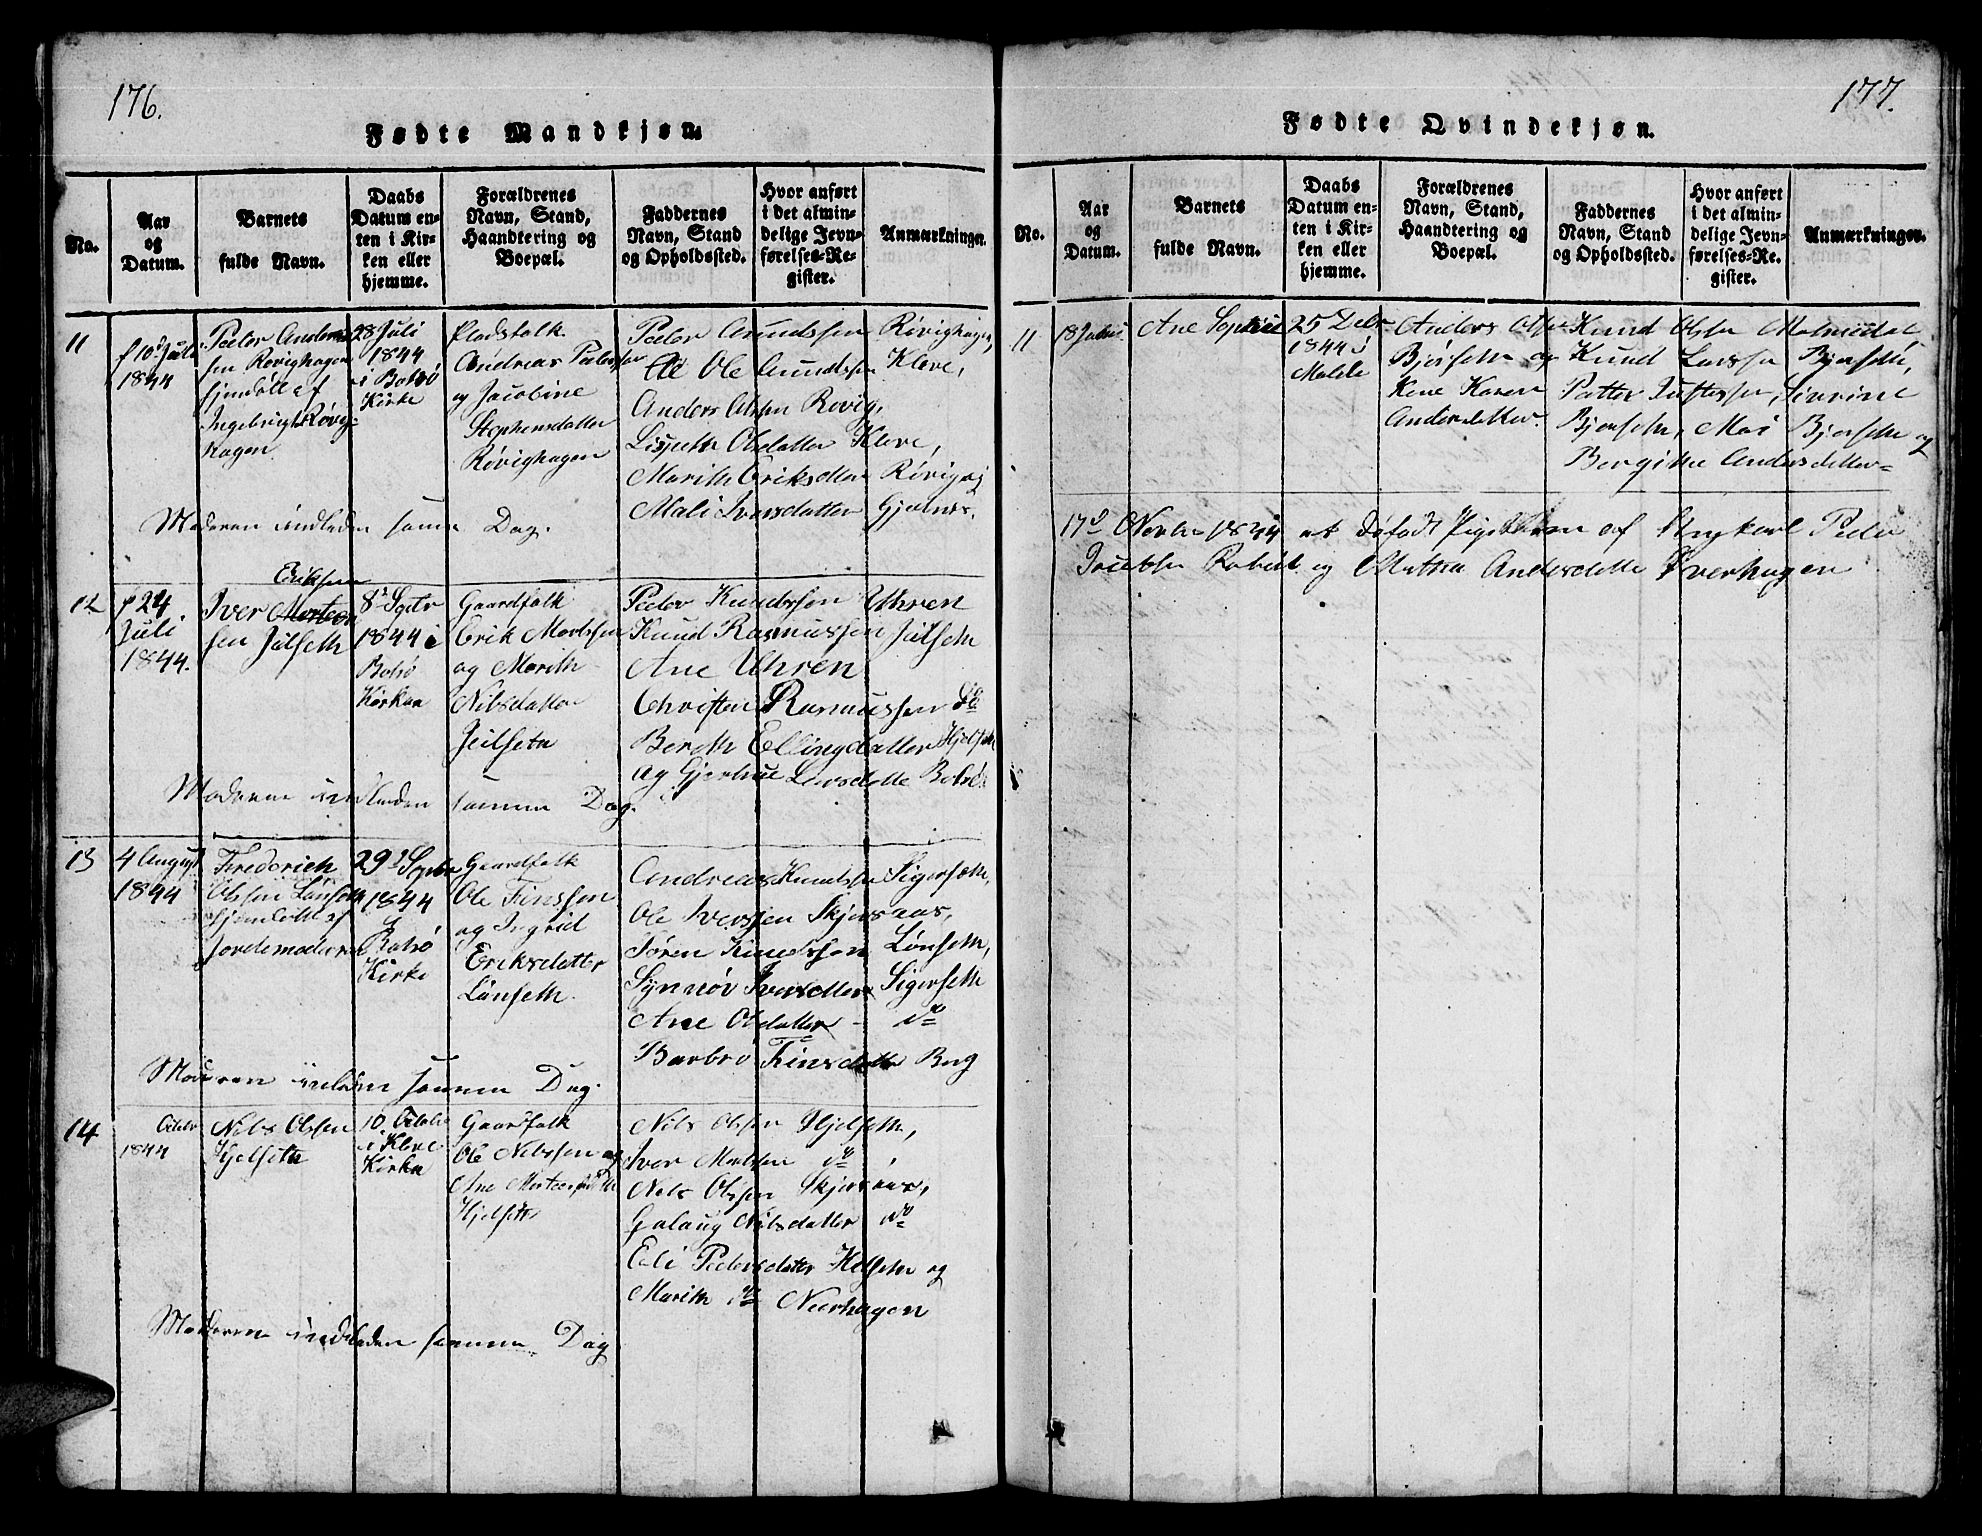 176.
Fødte Mandkjøn.
No.
Aar
og
Datum.
Barnets
fulde Navn.
Daabs
Datum en-
ten i Kir-
ken eller
hjemme.
Forældrenes
Navn, Stand,
Haandtering og
Boepæl.
Faddernes
Navn, Stand
og Opholdssted.
Hvor anført
i det almin-
delige Jevn-
førelses-Re-
gister.
Anmærkninger.
11
10 Juli
1844
Peder Andreas
sen Røvighagen
hjemdøbt af
Ingebrigt Røvig-
hagen
28 Juli
1844
i Bolsø
Kirke
Pladsfolk
Andreas Pedersen
og Jacobine
Stephensdatter
Røvighagen
Peder Amundssen Røvighagen,
Ole Amundssen Kleve,
Anders Olsen Røvig,
Lisbeth Olsdatter Kleve,
Marith Eriksdtter Røvig og
Mali Iversdatter Gjelnes.
Moderen indleden samme Dag.
12
24
Juli
1844.
Eriksen
Iver Morten
sen Julseth
8de Septr
1844 i
Bolsø
Kirke
Gaardfolk
Erik Mortssen
og Marith
Nilsdatter
Julseth
Peder Knudssen Uhren
Knud Rasmussen Julseth
Ane Uhren
Christen Rasmussen do
Bereth Ellingdatter Hjelseth
og Gjertrue Larsdatte Bolsø
Moderen indleden samme Dag.
13
4 August
1844
Frederich
Olssen Lønseth
hjemdøbt af
Jordemoderen
29de Septbr
1844
Bolsø
Kirke
Gaardfolk
Ole Finssen
og Ingrid
Eriksdatter
Lønseth
Andreas Knudsen Sigerseth,
Ole Iverssen Skjorsaas,
Søren Knudssen Lønseth,
Synnøv Iversdatter Sigerseth
Ane Olsdatter do
Barbro Finsdatter Berg
Moderen indleden samme Dag.
14
Octbr
1844
Nils Olssen
Hjelseth
10 Octobr
i Kleve
Kirke
Gaardfolk
Ole Nilssen og
Ane Mortensdatter
Hjelseth
Nils Olssen Hjelseth,
Iver do
Nils Olssen Skjorsaas,
Golaug Nilsdatter do
Eli Pedersdatter Hjelseth og
Marith do Neerhagen
Moderen indleden samme Dag
177.
Fødte Qvindekjøn.
No.
Aar
og
Datum.
Barnets
fulde Navn.
Daabs
Datum en-
ten i Kir-
ken eller
hjemme.
Forældrenes
Navn, Stand,
Haandtering og
Boepæl.
Faddernes
Navn, Stand
og Opholdssted.
Hvor anført
i det almin-
delige Jevn-
førelses-Re-
gister.
Anmærkninger.
11
18 Juli
Ane Sophie
25 Decbr
1844 i
Molde
Anders Olsen
Bjørseth og
Kone Karen
Andersdatter.
Knud Olsen Malmedal
Knud Larssen Bjørseth,
Petter Juftessen, Sivrine
Bjørseth, Mari Bjørseth og
Bergithe Andersdatter
17de Novbr 1844 et dødfødt Pigebarn af Peder
Jacobsen og Martha Andersdatte Øverhagen